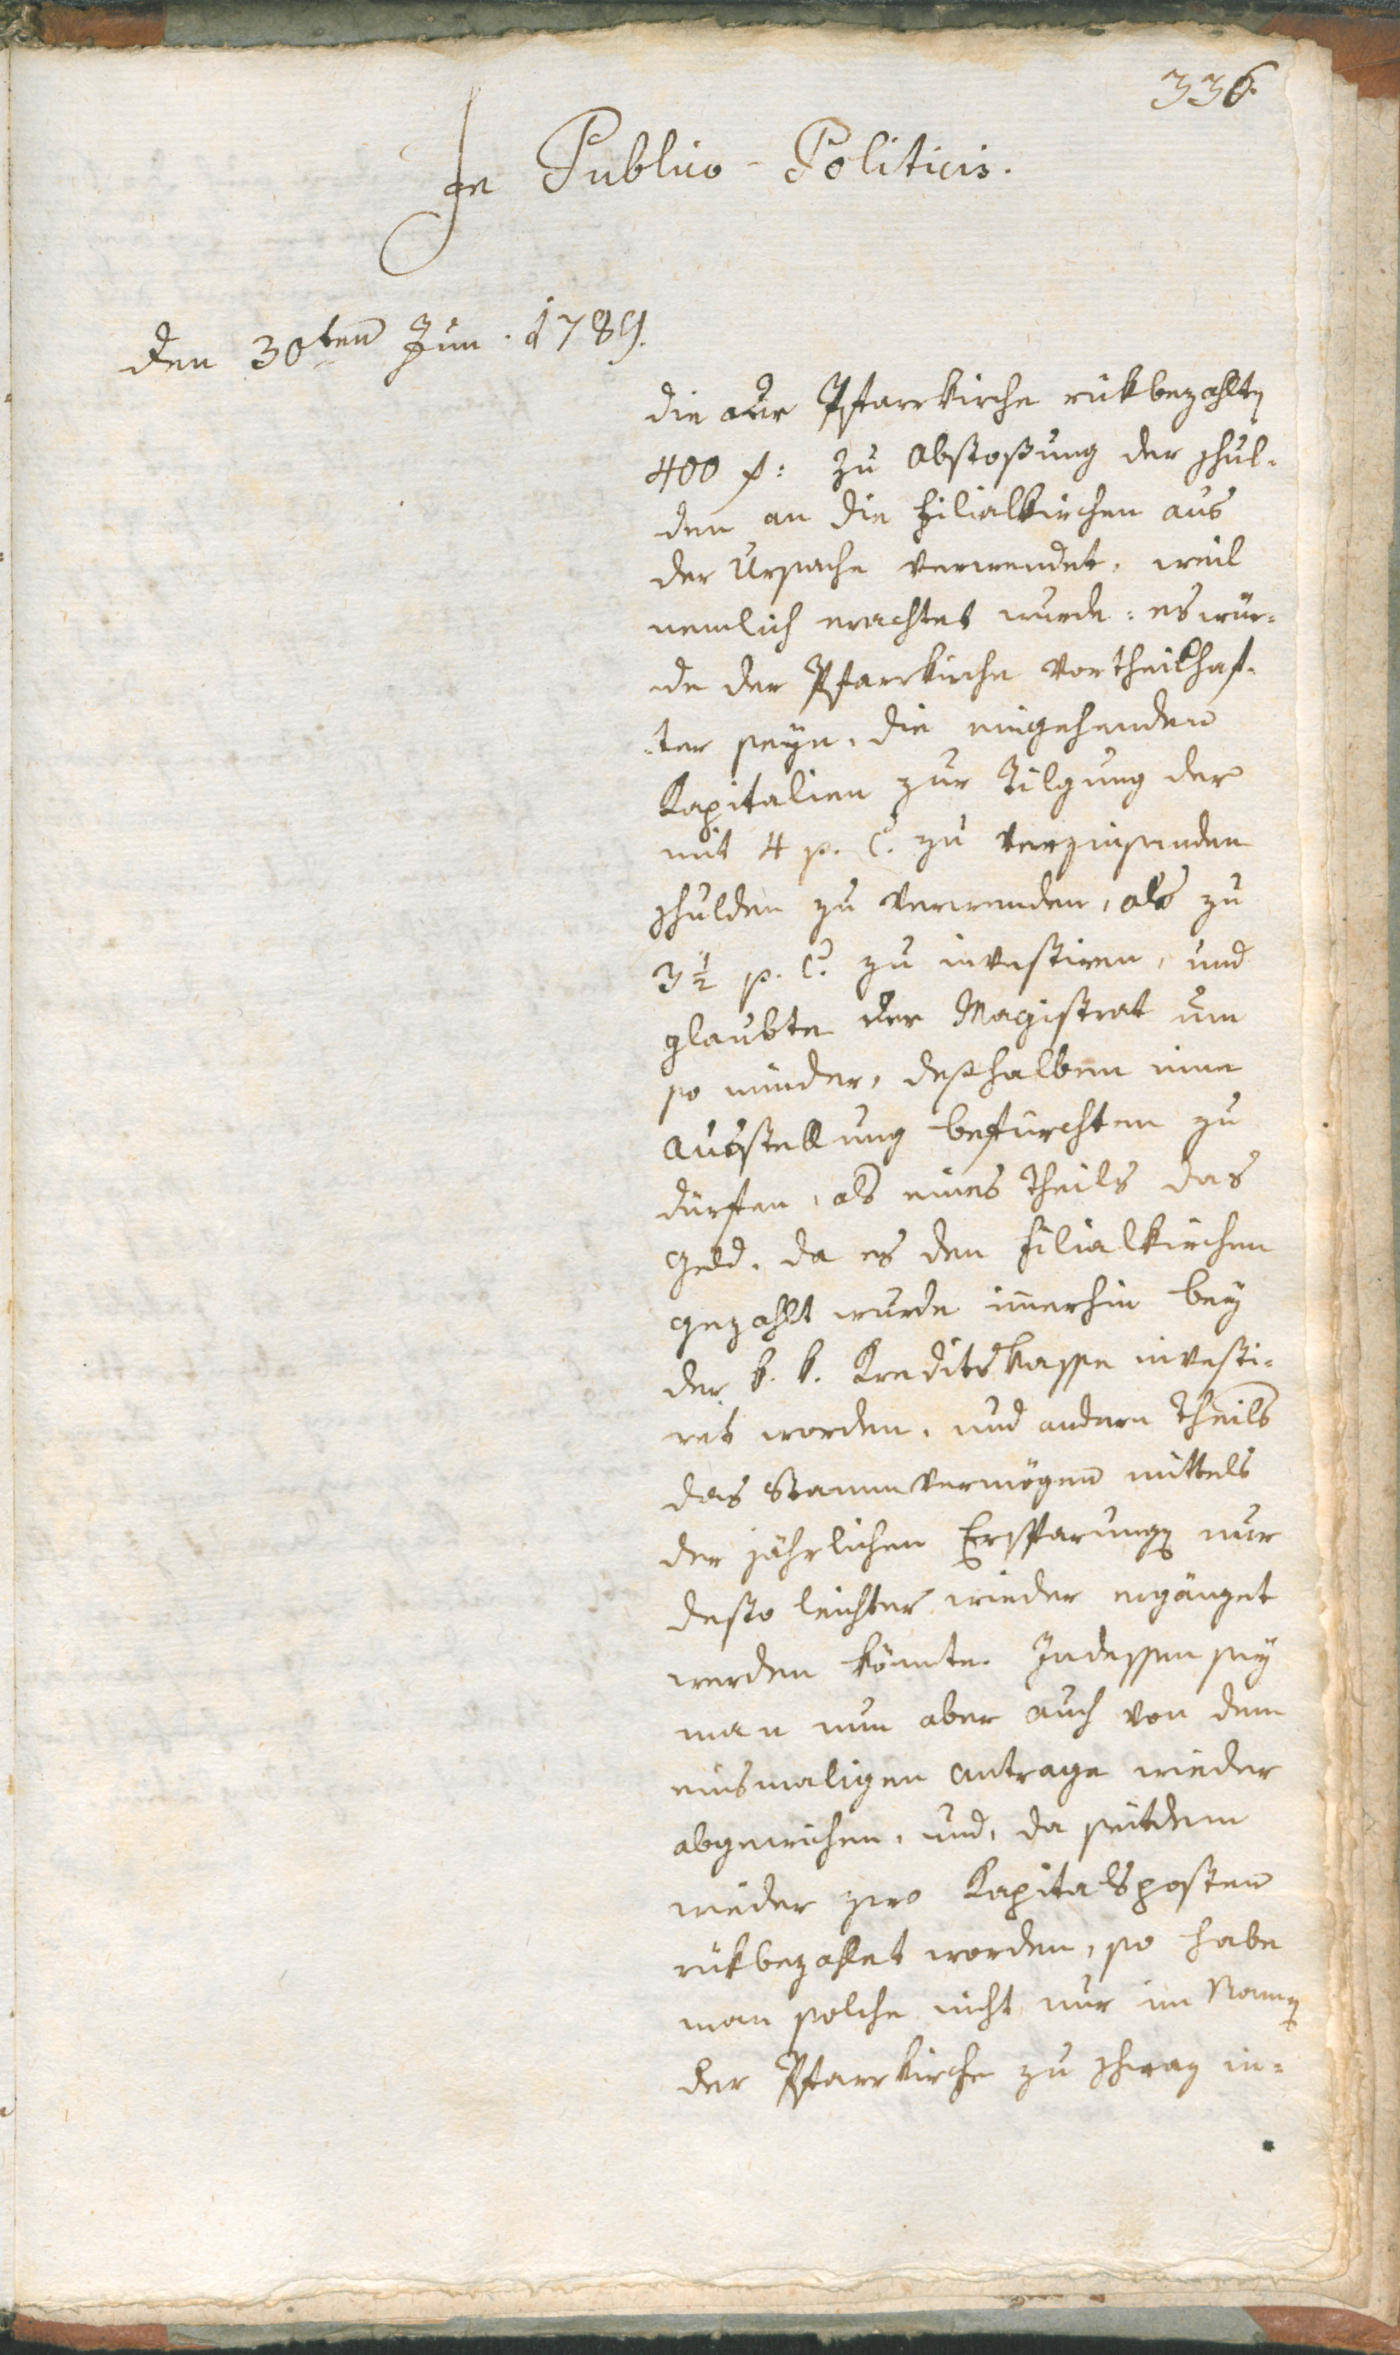 336.
In Publico-Politicis.
den 30ten Jun. 1789.
die der Pfarrkirche rükbezahlten
400 f: zu Abstoßung der Schul-
den an die Filialkirchen aus
der Ursache verwendet, weil
nemlich erachtet wurde: es wür-
de der Pfarrkirche vortheilhaf-
ter seyn, die eingehenden
Kapitalien zur Tilgung der
mit 4 p. C. zu verzinsenden
Schulden zu verwenden, als zu
3 1/2 p. C. zu investiren, und
glaubte der Magistrat um
so minder, deßhalben eine
Ausstellung befürchten zu
dürfen, als eines Theils das
Geld, da es den Filialkirchen
gezahlt wurde immerhin bey
der k. k. Kreditskasse investi-
ret worden, und andern Theils
das Stammvermögen mittels
der jährlichen Ersparungen nur
desto leichter wieder ergänzet
werden könnte. Indessen sey
man nun aber auch von dem
einsmaligen Antrage wieder
abgewichen, und, da seitdem
wieder zwo Kapitalsposten
rükbezahlet worden, so habe
man solche nicht nur im Namen
der Pfarrkirche zu Schwaz in-